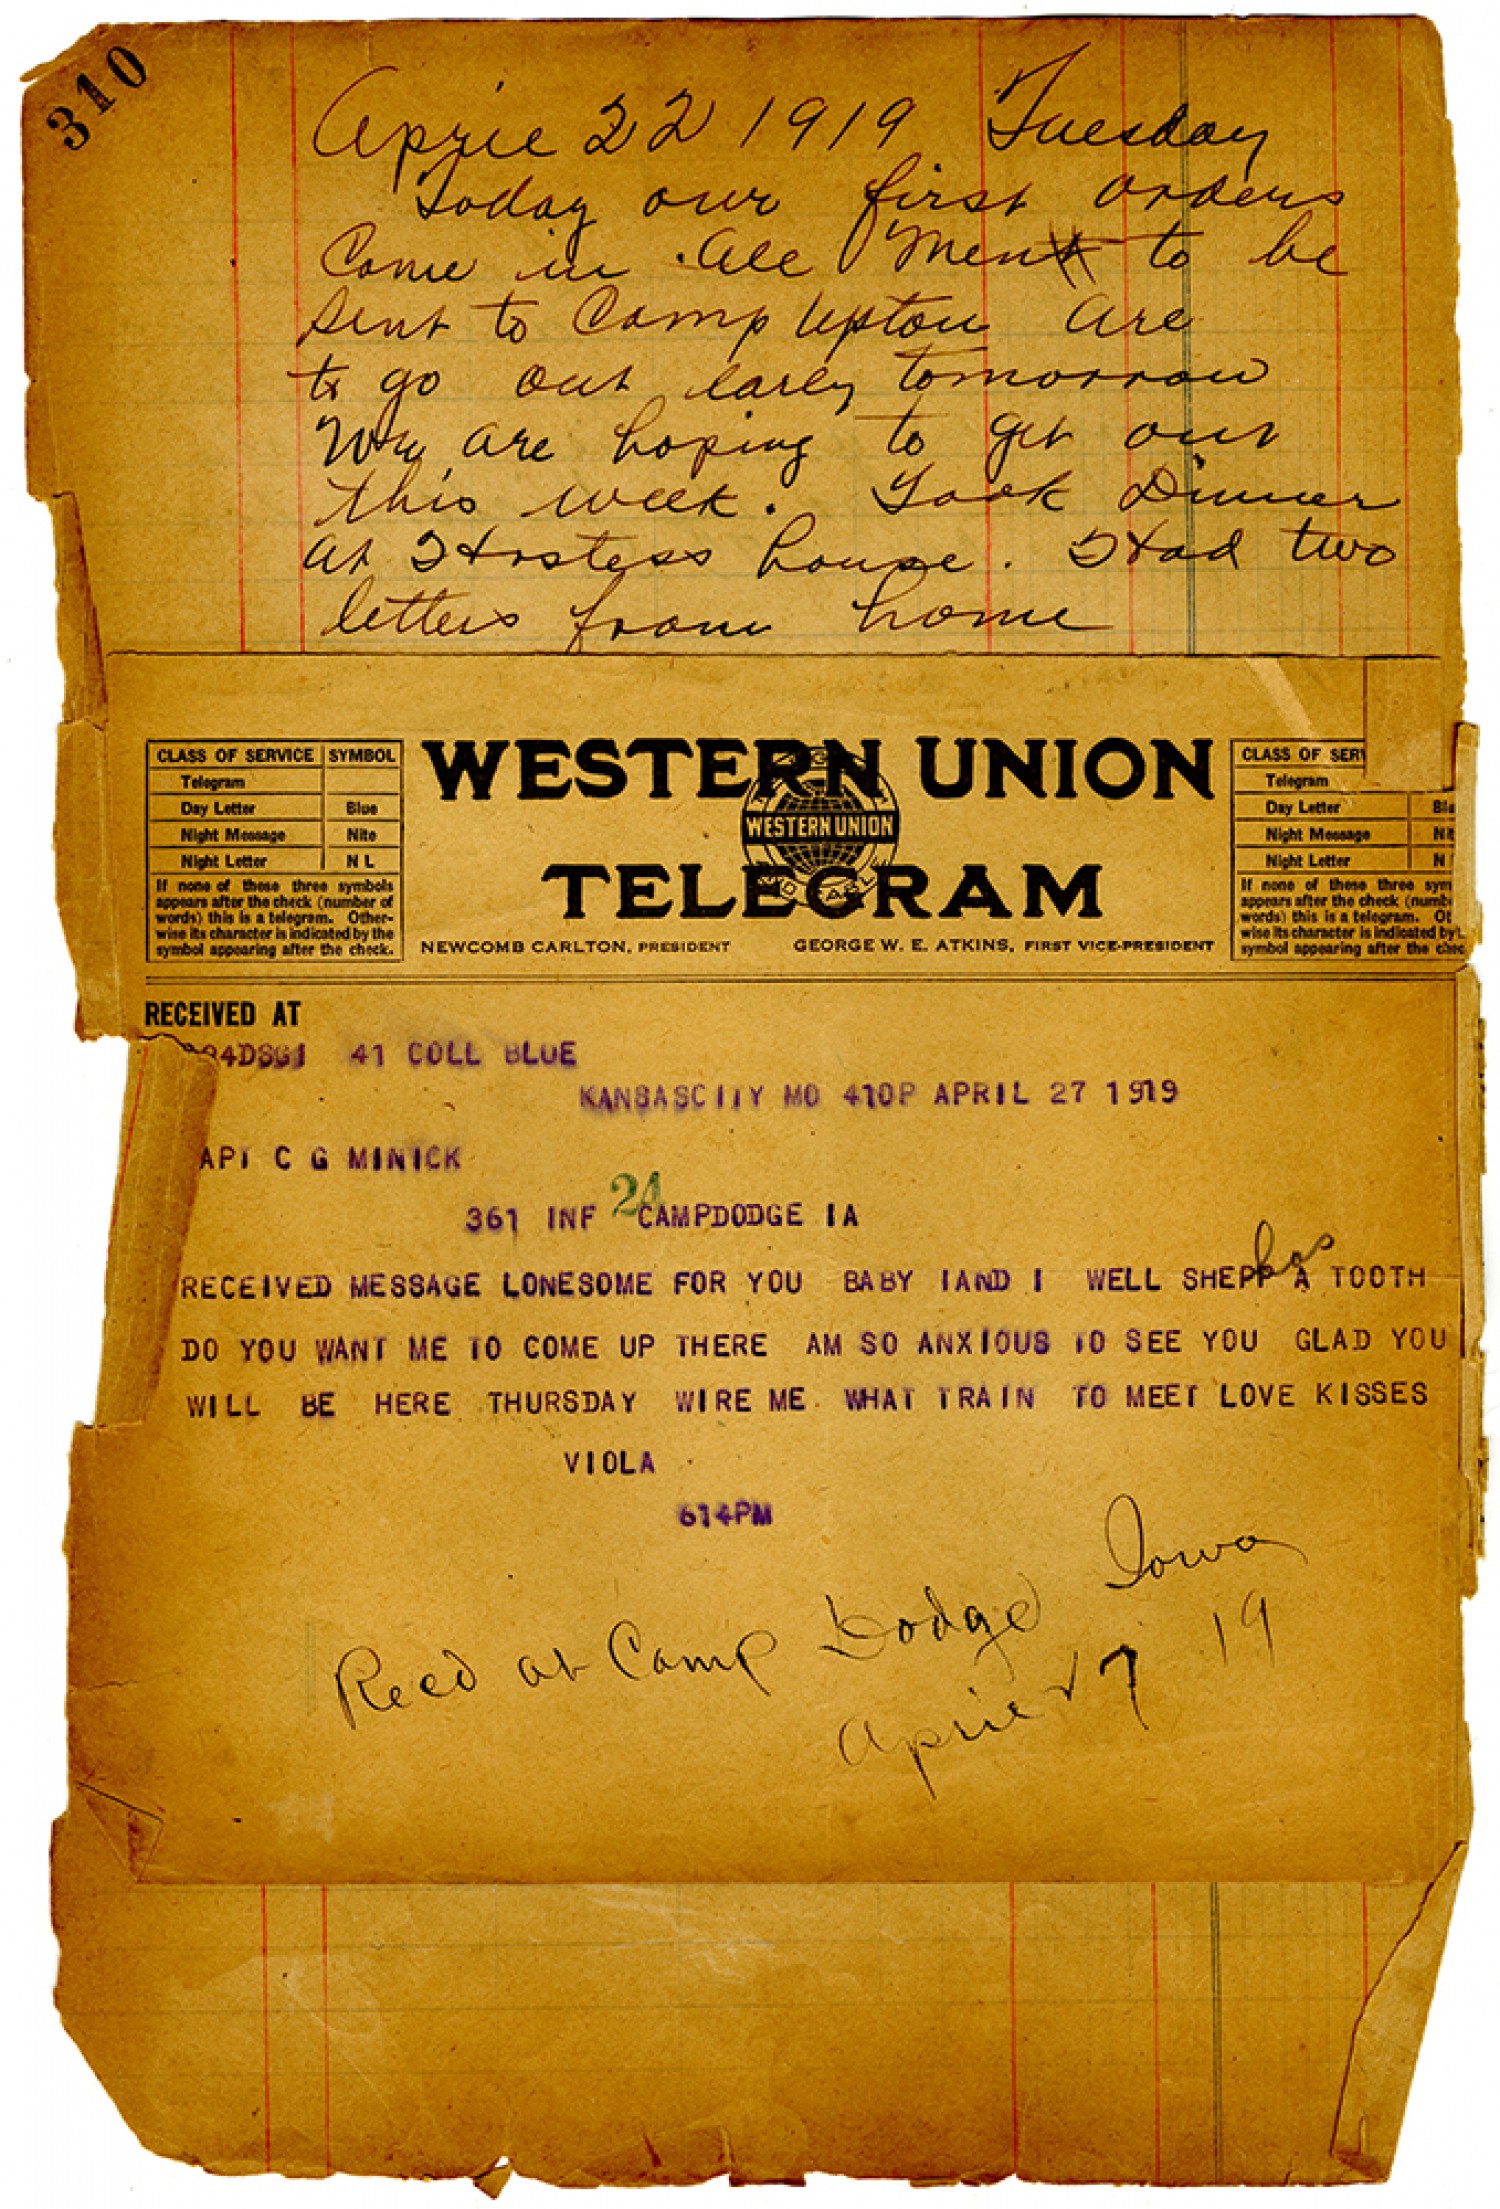 310
April 22 1919 Tuesday
Today our first orders
Come in. All Men to be
sent to Camp Upton are
to go out early tomorrow
We are hoping to get out
this week. Took Dinner
at Hostess house. Had two
letters from home
CLASS OF SERVICE SYMBOL
Telegram
Day Letter Blue
Night Message Nite
Night Letter N L
If none of these three symbols
appears after the check (number of
words) this is a telegram. Other-
wise its character is indicated by the
symbol appearing after the check.
WESTERN UNION
WESTERN UNION
TELEGRAM
NEWCOMB CARLTON, PRESIDENT GEORGE W. E. ATKINS, FIRST VICE-PRESIDENT
CLASS OF SERV
Telegram
Day Letter Blu
Night Message Nit
Night Letter N
If none of these three sym
appears after the check (numb
words) this is a telegram. Ot
wise its character is indicated by
symbol appearing after the chec
RECEIVED AT
41 COLL BLUE
KANSASCITY MO 410P APRIL 27 1919
APT C G MINICK
361 INF 24 CAMPDODGE IA
RECEIVED MESSAGE LONESOME FOR YOU BABY IAND I WELL SHEPP has A TOOTH
DO YOU WANT ME TO COME UP THERE AM SO ANXIOUS TO SEE YOU GLAD YOU
WILL BE HERE THURSDAY WIRE ME WHAT TRAIN TO MEET LOVE KISSES
VIOLA
614PM
Recd at Camp Dodge Iowa
April 27 19